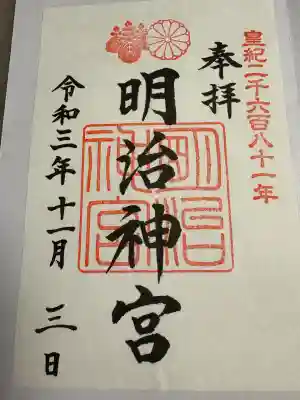 皇紀二千六百八十一年
奉拝
明治神宮
明治
神宮
令和三年十一月三日